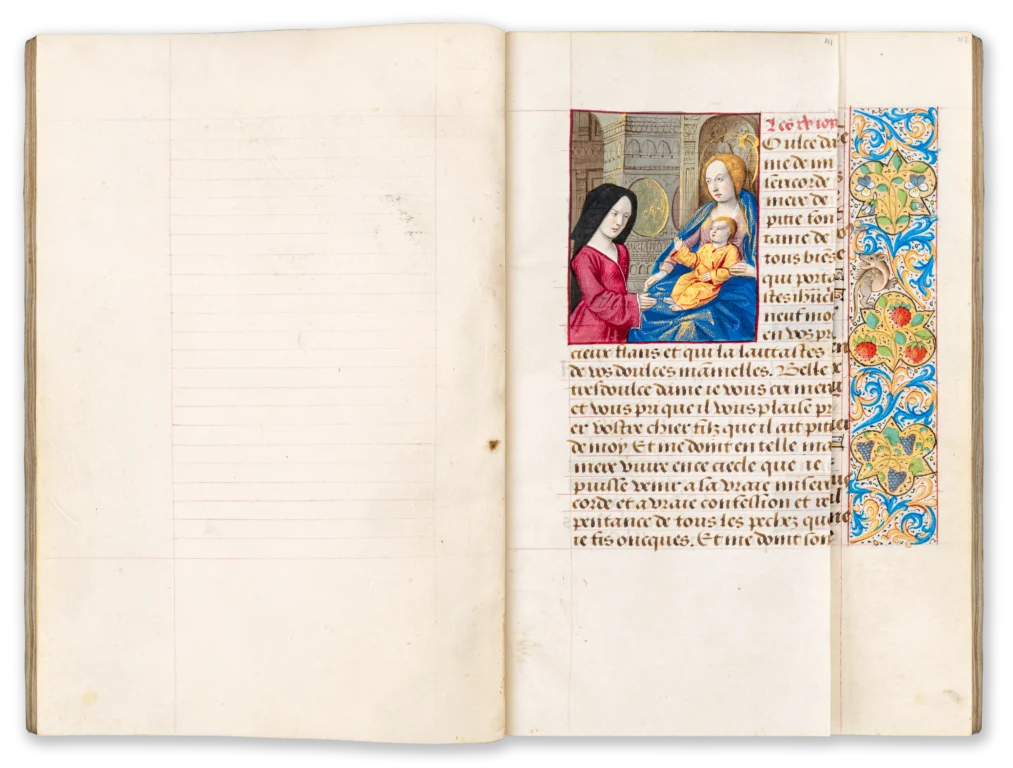 Les xv ioy
Oulce da
me de mi
sericorde
mere de
pitie fon
taine de
tous biēs
qui porta
stes
neuf moi
en vos pre
cieux flans et qui la laictastes
de vos doulces māmelles. Belle
tresdoulce dame ie vous cri
et vous pri que il vous plaise
er vostre chier filz que il ait
de moy Et me doint en telle ma
niere viure en ce siecle que ie
puisse venir a la vraie
corde et a vraie confession et
pentance de tous les pechez
ie fis oncques. Et me doint son